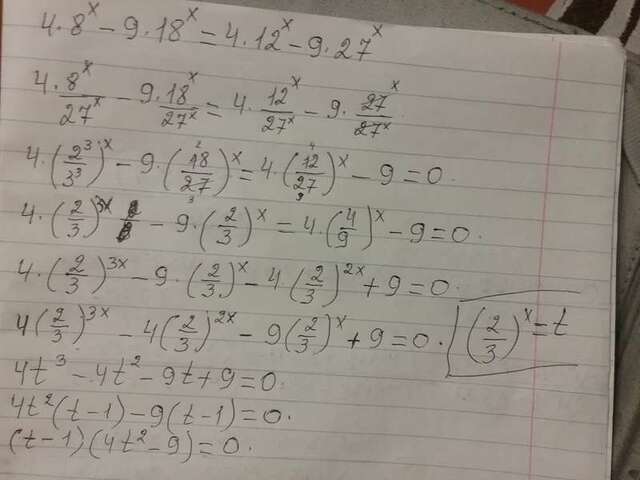 4·8^x − 9·18^x = 4·12^x − 9·27^x
4·8^x/27^x − 9·18^x/27^x = 4·12^x/27^x − 9·27^x/27^x
4·(2^3/3^3)^x − 9·(18/27)^x 2 3 = 4·(12/27)^x 4 9 − 9 = 0.
4·(2/3)^3x − 9·(2/3)^x = 4·(4/9)^x − 9 = 0.
4·(2/3)^3x − 9·(2/3)^x − 4(2/3)^2x + 9 = 0.
4(2/3)^3x − 4(2/3)^2x − 9(2/3)^x + 9 = 0. (2/3)^x = t
4t^3 − 4t^2 − 9t + 9 = 0.
4t^2(t − 1) − 9(t − 1) = 0.
(t − 1)(4t^2 − 9) = 0.